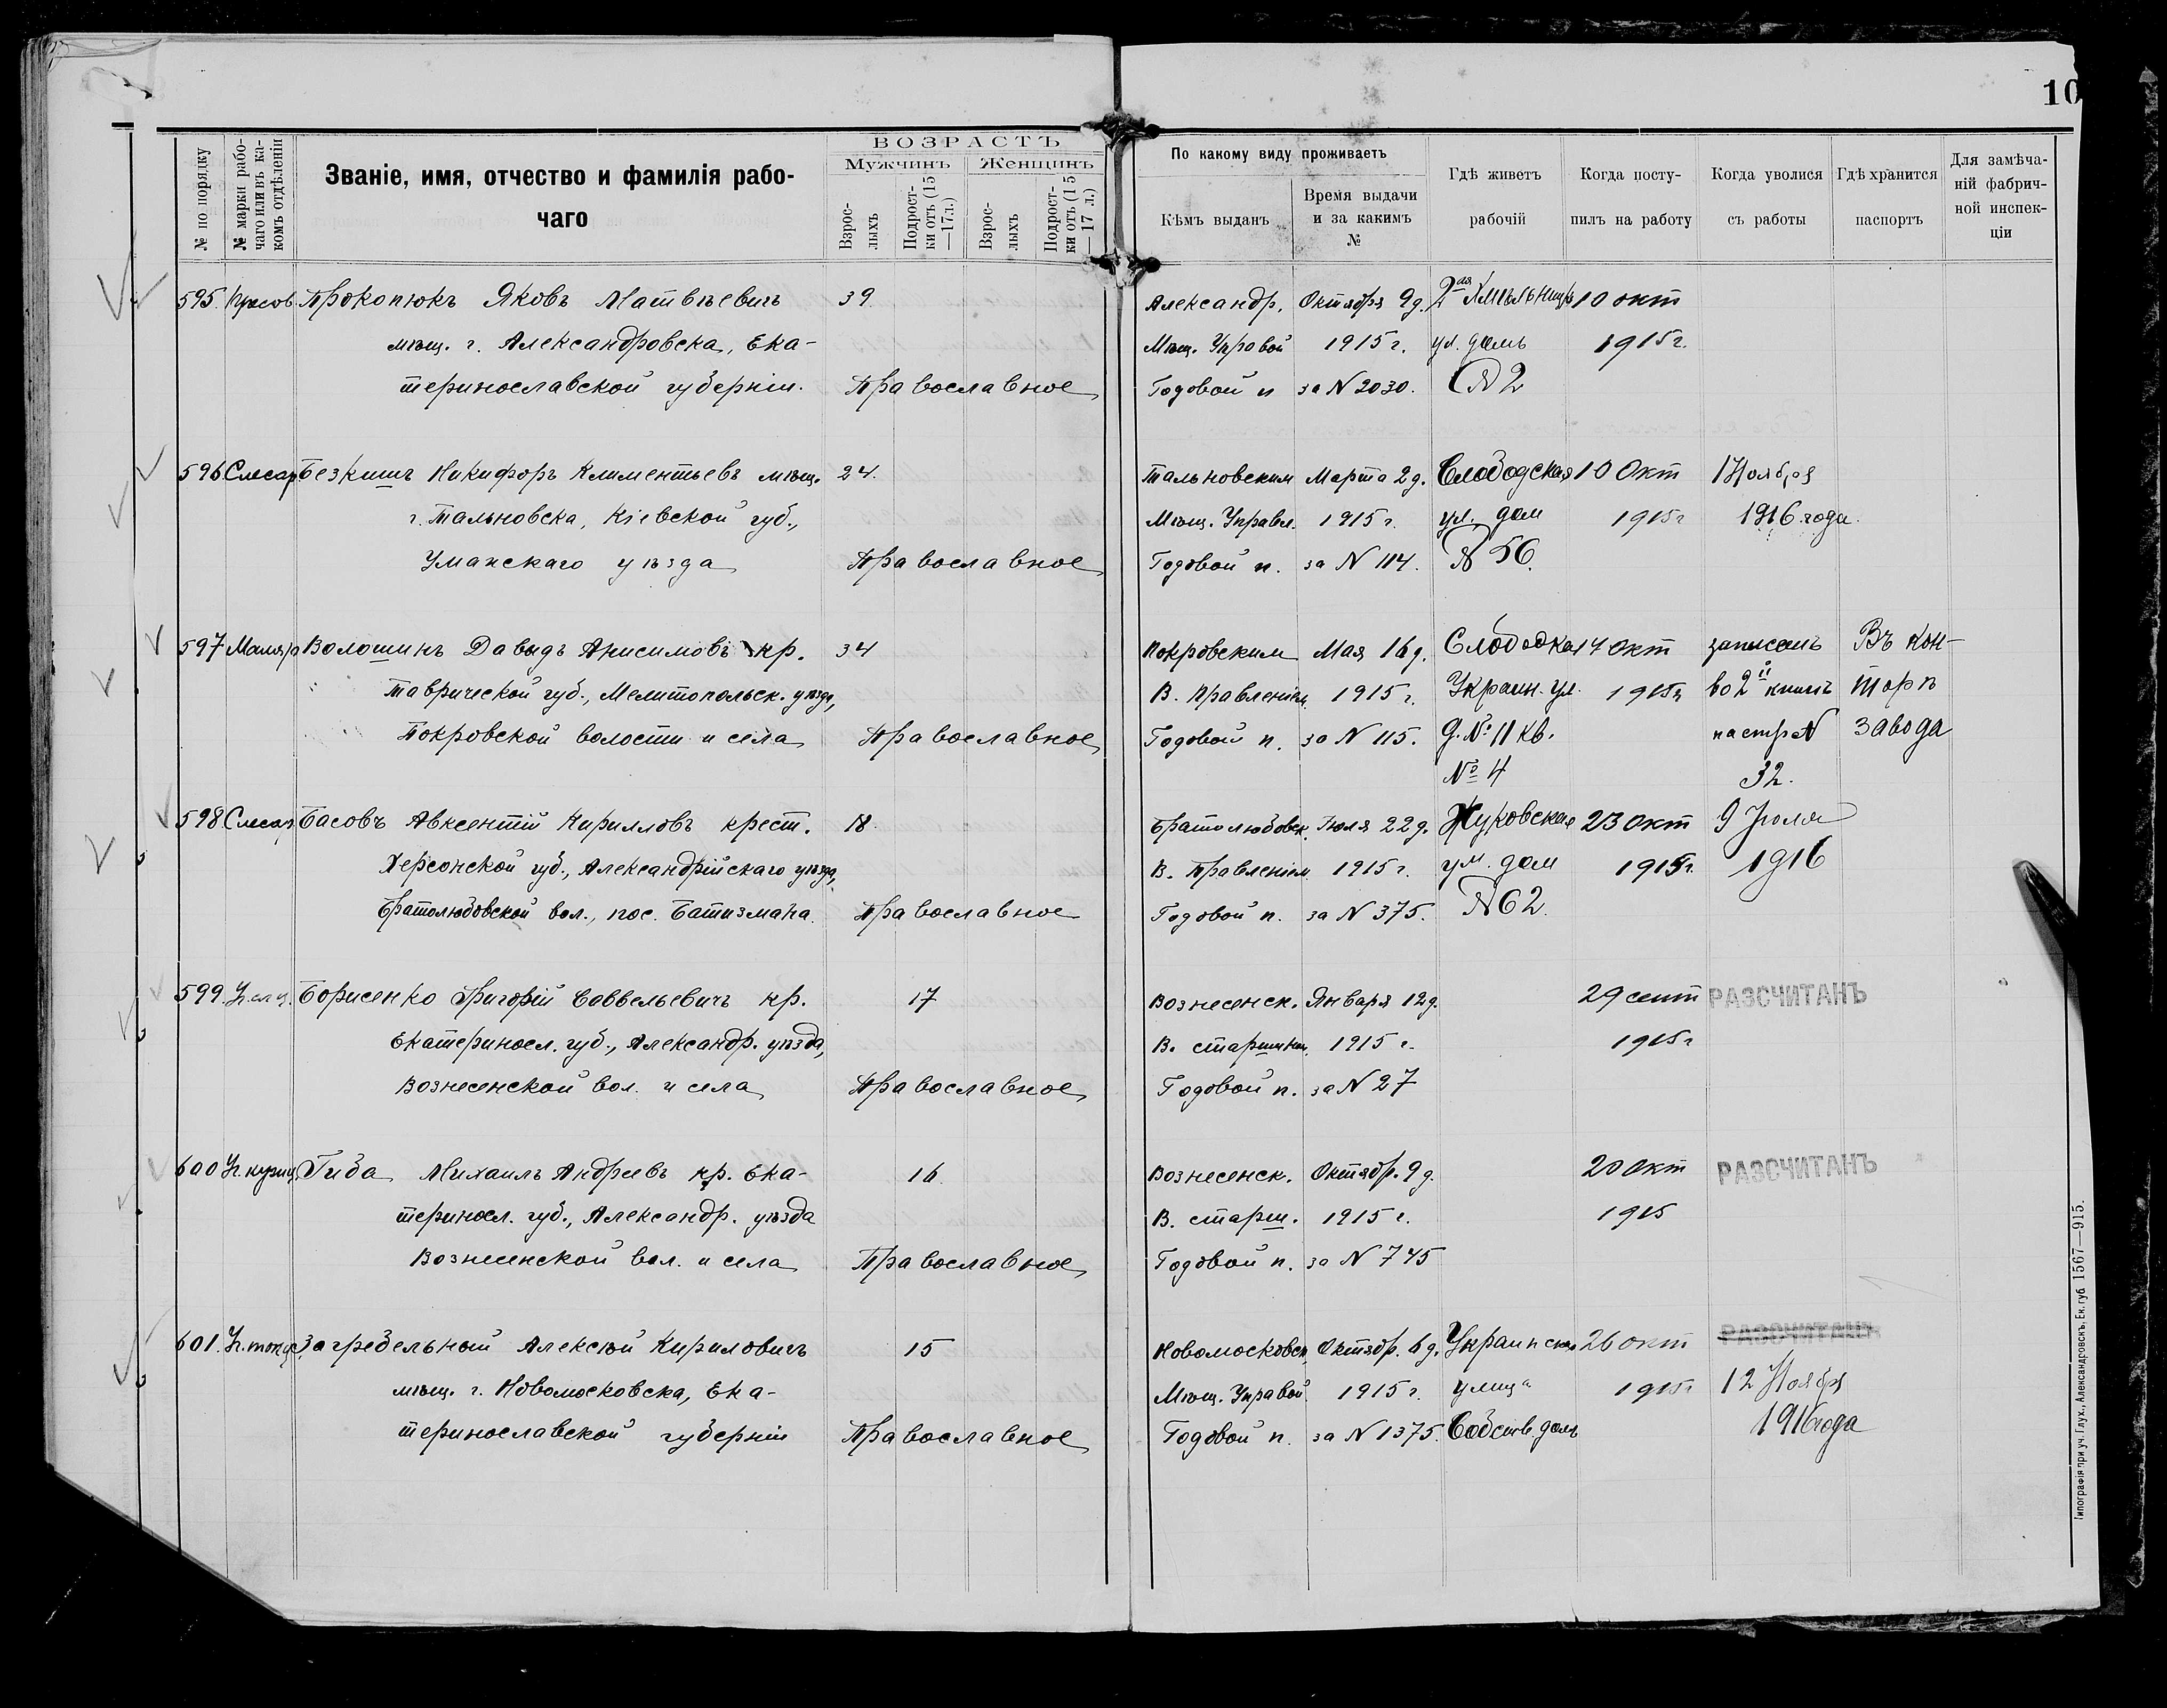 10
№ по порядку
№ марки рабо-
чаго или въ ка-
комъ отдѣленіи
Званіе, имя, отчество и фамилія рабо-
чаго
ВОЗРАСТЪ
Мужчинъ
Женщинъ
Взрос-
лыхъ
Подрост-
ки отъ (15
—17 л.)
Взрос-
лыхъ
Подрост-
ки отъ (15
— 17 л.)
По какому виду проживаетъ
Кѣмъ выданъ
Время выдачи
и за какимъ
№
Гдѣ живетъ
рабочій
Когда посту-
пилъ на работу
Когда уволися
съ работы
Гдѣ хранится
паспортъ
Для замѣча-
ній фабрич-
ной инспек-
ціи
595. Прокопюкъ Яковъ Матвѣевичъ 39. Александр. Октября 9 д. 2ая 10 окт
мѣщ. г. Александровска, Ека- Мѣщ. Управой 1915 г. ул. домъ 1915 г.
теринославской губерніи. Православное Годовой п за N 2030. N 2
596 Слесар Безкишъ Никифоръ Климентьевъ мѣщ. 24. Тальновским Марта 2 д. Слободская 10 Окт 1 Ноября
г. Тальновска, Кіевской губ., Мѣщ. Управл. 1915 г. ул. дом 1915 г 1916 года.
Уманскаго уѣзда Православное Годовой п. за N 114. N 56.
597 Маляр Волошинъ Давыдъ Анисимовъ кр. 34 Покровским Мая 16 д. Слободка 14 окт записанъ Въ кон-
Таврической губ., Мелитопольск. уѣзда, В. Правленіем 1915 г. Украин. ул. 1915 г во 2й книгѣ торѣ
Покровской волости и села Православное Годовой п. за N 115. д. № 11 кв. на стр N завода
№ 4 32.
598 Слесар Басовъ Авксентій Кирилловъ крест. 18. Братолюбовск. Іюля 22 д. Жуковская 23 окт 9 Іюля
Херсонской губ., Александрійскаго уѣзда, В. Правленіем 1915 г. ул. дом 1915 г. 1916
Братолюбовской вол., пос. Батизмана. Православное Годовой п. за N 375. N 62.
599. Борисенко Григорій Саввельевичъ кр. 17 Вознесенск. Января 12 д. 29 сент РАЗСЧИТАНЪ
Екатериносл. губ., Александр. уѣзда, В. старшин. 1915 г. 1915 г
Вознесенской вол. и села Православное Годовой п. за N 27
600 Уч. кузнц. Гиба Михаилъ Андреевъ кр. Ека- 16. Вознесенск. Октябр. 9 д. 20 Окт РАЗСЧИТАНЪ
териносл. губ., Александр. уѣзда В. старш. 1915 г. 1915
Вознесенской вол. и села Православное Годовой п. за N 745
601. Уч. ток. Загребельный Алексѣй Кириловичъ 15 Новомосковск. Октябр. 6 д. Украинская 26 окт РАЗСЧИТАНЪ
мѣщ. г. Новомосковска, Ека- Мѣщ. Управой 1915 г. улица 1915 г 12 Ноябр
теринославской губерніи Православное Годовой п. за N 1375. Собств. домъ 1916 года
Типографія при уч. Глух., Александровскъ, Ек. губ. 1567—915.